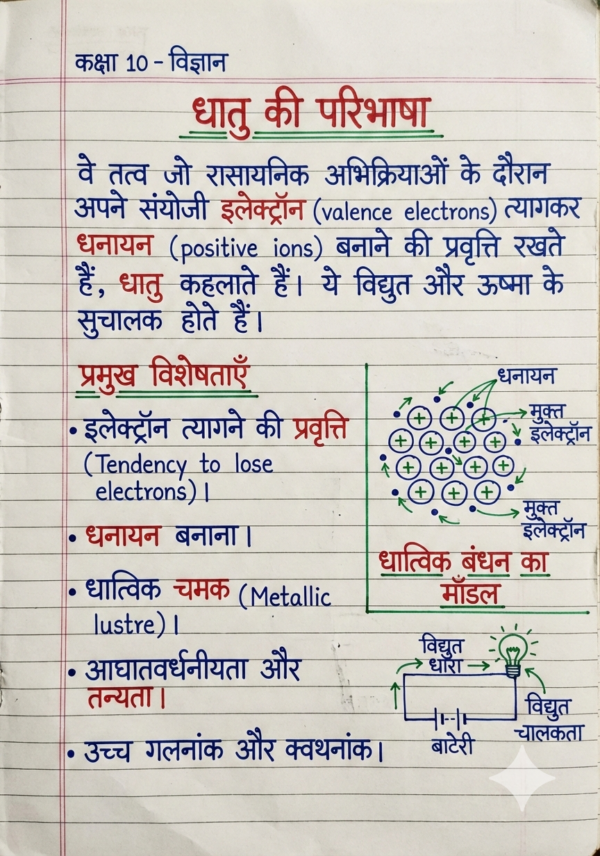 कक्षा 10 - विज्ञान
धातु की परिभाषा
वे तत्व जो रासायनिक अभिक्रियाओं के दौरान
अपने संयोजी इलेक्ट्रॉन (valence electrons) त्यागकर
धनायन (positive ions) बनाने की प्रवृत्ति रखते
हैं, धातु कहलाते हैं। ये विद्युत और ऊष्मा के
सुचालक होते हैं।
प्रमुख विशेषताएँ
• इलेक्ट्रॉन त्यागने की प्रवृत्ति
(Tendency to lose
electrons)।
• धनायन बनाना।
• धात्विक चमक (Metallic
lustre)।
• आघातवर्धनीयता और
तन्यता।
• उच्च गलनांक और क्वथनांक।
धनायन
मुक्त
इलेक्ट्रॉन
+ + +
+ + + +
+ + + +
+ + +
मुक्त
इलेक्ट्रॉन
धात्विक बंधन का
मॉडल
विद्युत
धारा
विद्युत
चालकता
बाटेरी